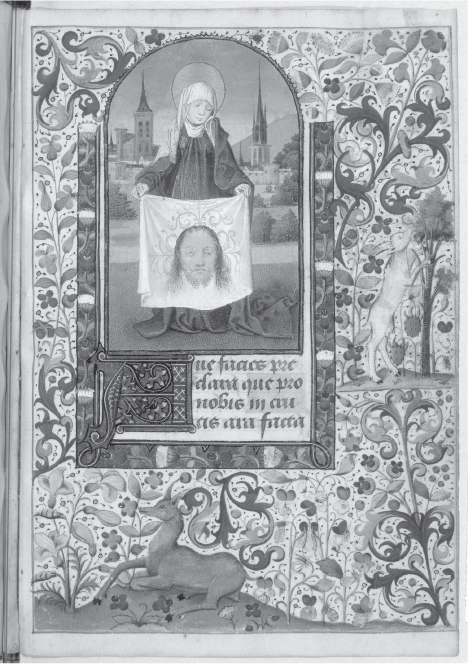 Aue facies pre
clara que pro
nobis in cru
cis ara facta